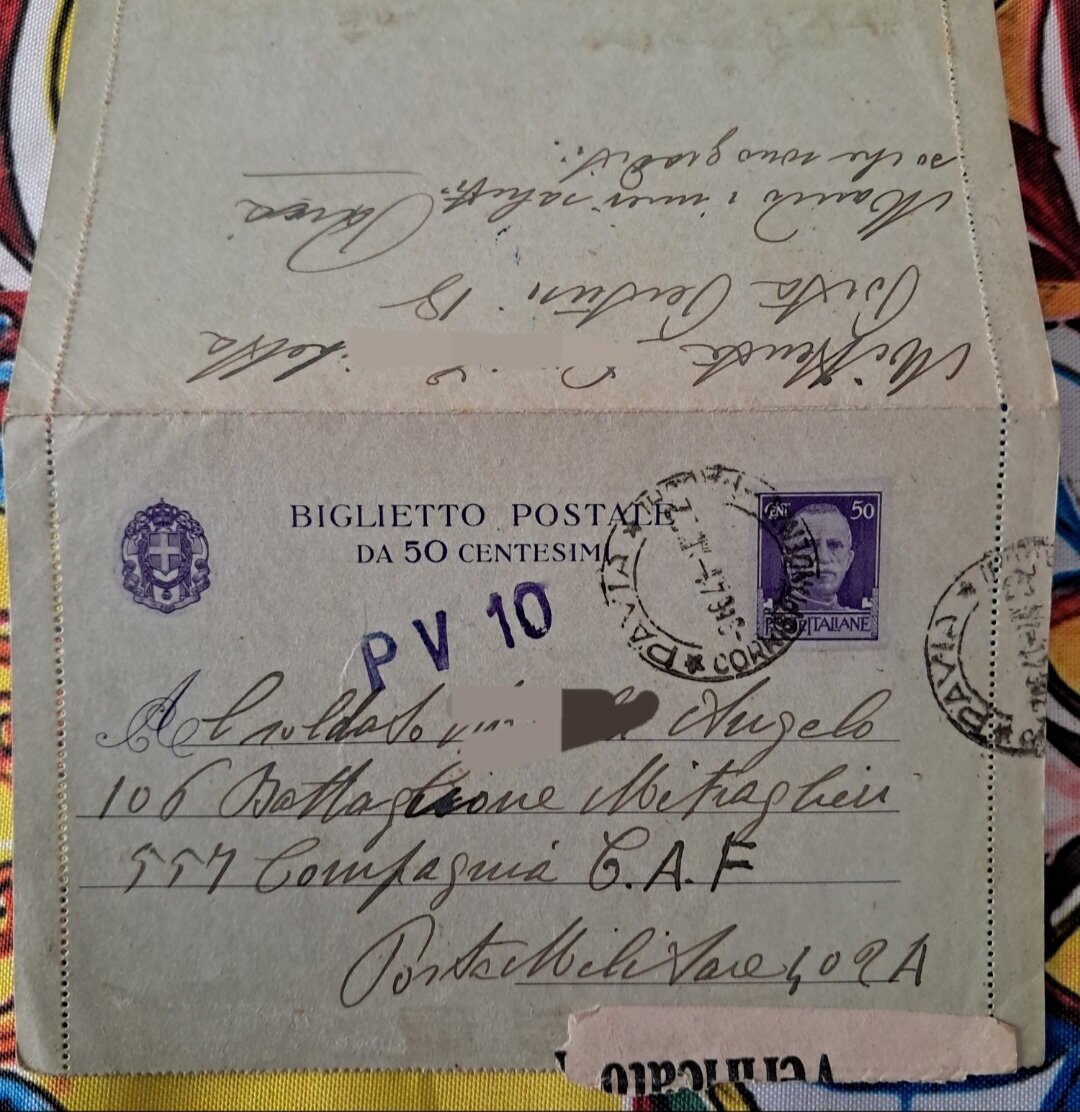 so che sono graditi.
Mario i miei saluti. Pavia
Porta 18
Mittente
BIGLIETTO POSTALE
DA 50 CENTESIMI
CENT 50
POSTE ITALIANE
PAVIA
CORRISPONDENZE
PAVIA
PV 10
Al soldato Angelo
106 Battaglione Mitraglieri
557 Compagnia C.A.F
Posta Militare 402 A
Verificato